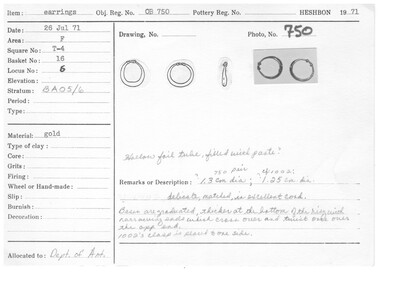 Item: earrings Obj. Reg. No. OB 750 Pottery Reg. No. HESHBON 1971
Date: 26 Jul 71
Area: F
Square No: T-4
Basket No: 16
Locus No: 6
Elevation:
Stratum: BAOS/6
Period:
Type:
Drawing, No. Photo, No. 750
Material: gold
Type of clay:
Core:
Grits:
Firing:
Wheel or Hand-made:
Slip:
Burnish:
Decoration:
"Hollow foil tube, filled with paste"
750 pair
Remarks or Description: "1.3 cm dia; 1.25 cm
delicate, matched, in excellent cond.
thicker at the bottom of the
narrowing ends which cross over and twist over over
the opp. end.
Allocated to: Dept. of Ant.